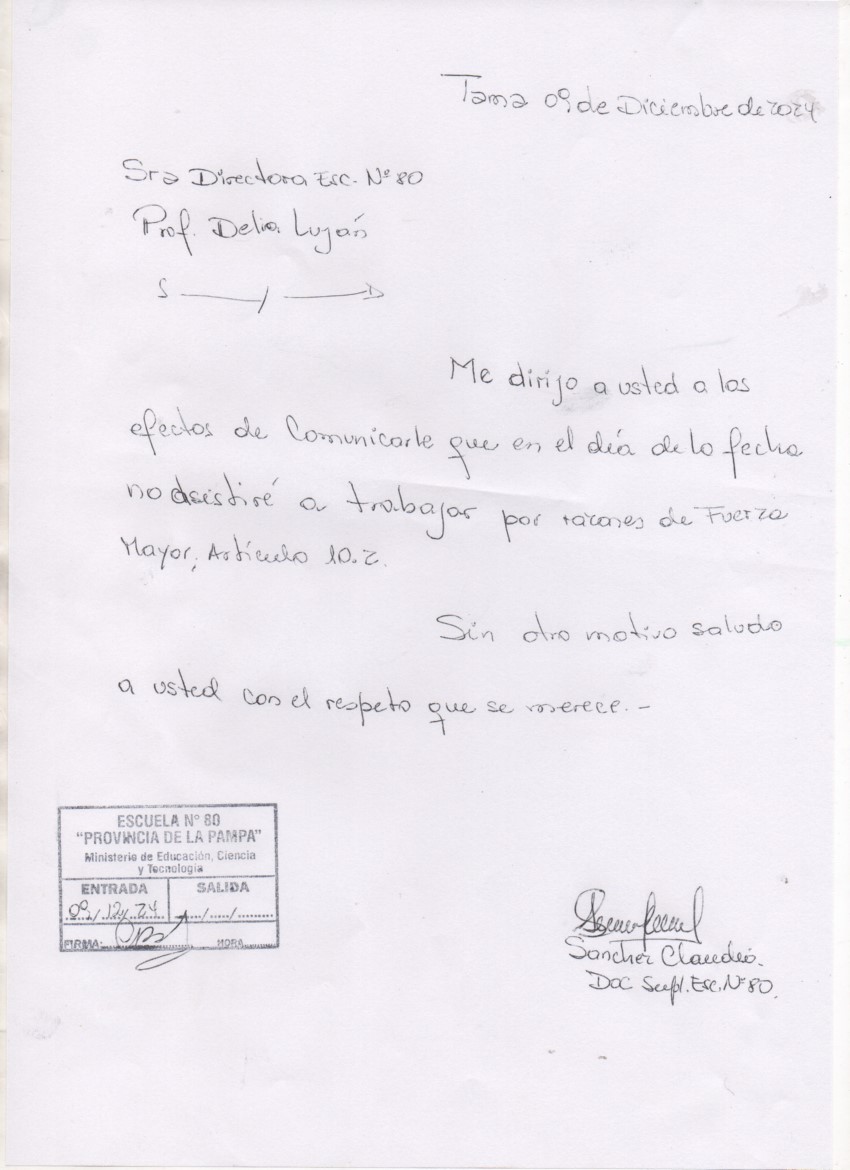 Tama 09 de Diciembre de 2024
Sra Directora Esc. Nº 80
Prof. Delia Luján
S / D
Me dirijo a usted a los
efectos de Comunicarle que en el día de la fecha
no asistiré a trabajar por razones de Fuerza
Mayor, Artículo 10.2.
Sin otro motivo saludo
a usted con el respeto que se merece.-
ESCUELA Nº 80
"PROVINCIA DE LA PAMPA"
Ministerio de Educación, Ciencia
y Tecnología
ENTRADA SALIDA
09/12/24 ..../...../.........
FIRMA: HORA
Sanchez Claudio.
Doc Supl. Esc. Nº 80.